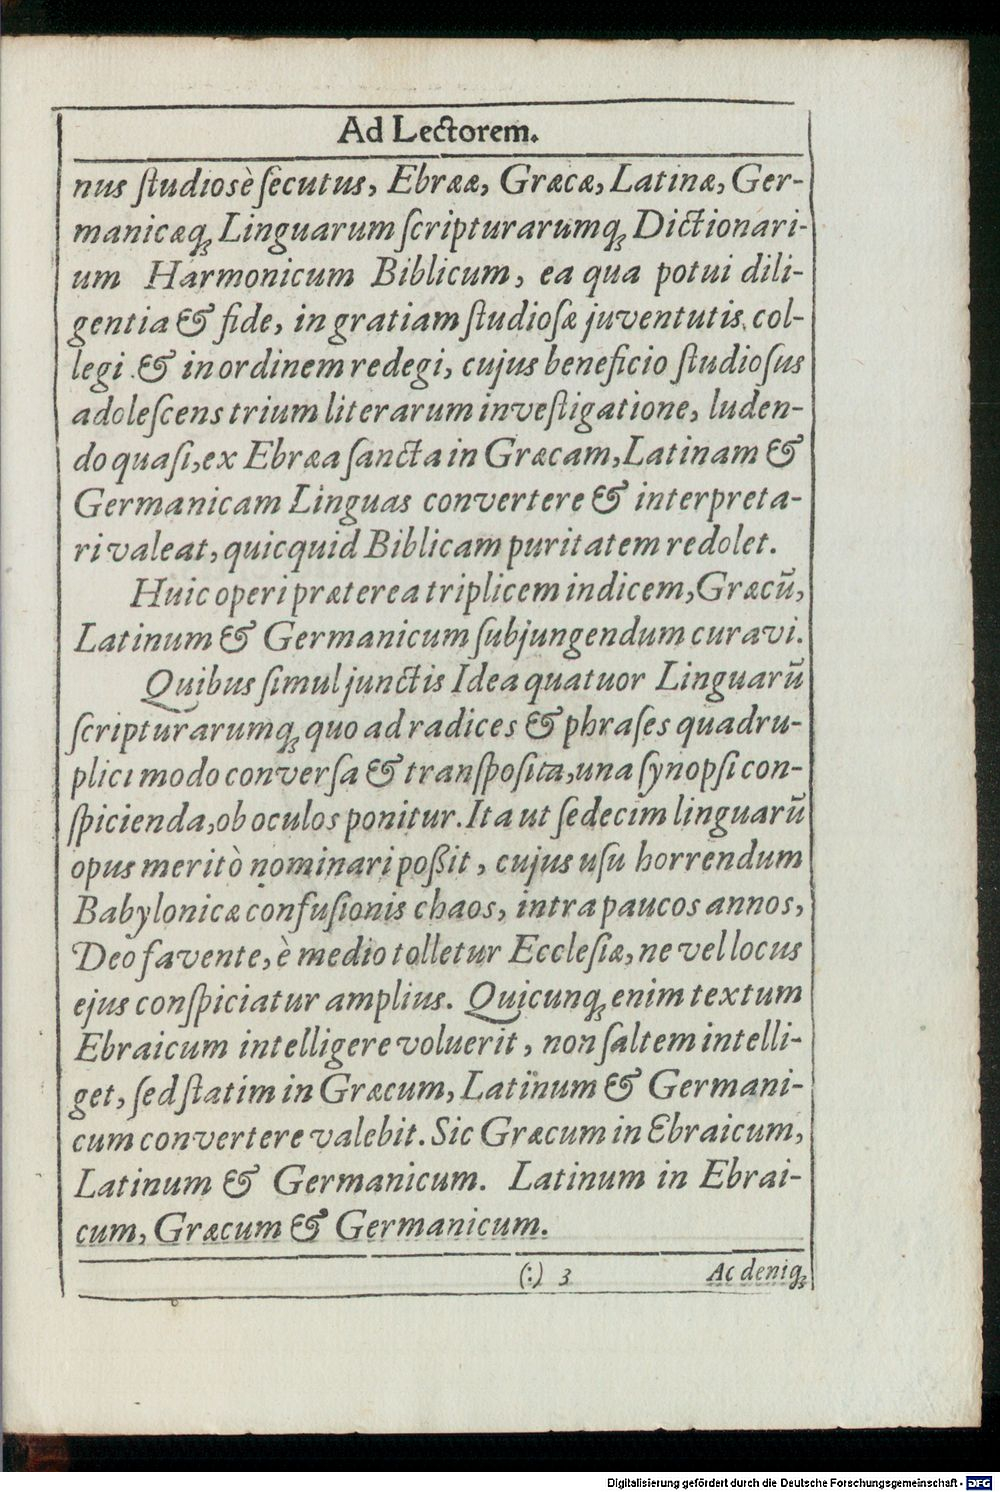 Ad Lectorem.
nus ſtudiosè ſecutus, Ebrææ, Græcæ, Latinæ, Ger-
manicæq́ꝫ Linguarum ſcripturarumq́ꝫ Dictionari-
um Harmonicum Biblicum, ea qua potui dili-
gentia & fide, in gratiam ſtudioſæ juventutis, col-
legi & in ordinem redegi, cujus beneficio ſtudioſus
adoleſcens trium literarum inveſtigatione, luden-
do quaſi, ex Ebræa ſancta in Græcam, Latinam &
Germanicam Linguas convertere & interpreta-
ri valeat, quicquid Biblicam puritatem redolet.
Huic operi præterea triplicem indicem, Græcū,
Latinum & Germanicum ſubjungendum curavi.
Quibus ſimul junctis Idea quatuor Linguarū
ſcripturarumqꝫ quo ad radices & phraſes quadru-
plici modo converſa & tranſpoſita, una ſynopſi con-
ſpicienda, ob oculos ponitur. Ita ut ſedecim linguarū
opus meritò nominari poßit, cujus uſu horrendum
Babylonicæ confuſionis chaos, intra paucos annos,
Deo favente, è medio tolletur Eccleſiæ, ne vel locus
ejus conſpiciatur amplius. Quicunqꝫ enim textum
Ebraicum intelligere voluerit, non ſaltem intelli-
get, ſed ſtatim in Græcum, Latinum & Germani-
cum convertere valebit. Sic Græcum in Ebraicum,
Latinum & Germanicum. Latinum in Ebrai-
cum, Græcum & Germanicum.
(:) 3 Ac deniqꝫ
Digitalisierung gefördert durch die Deutsche Forschungsgemeinschaft - DFG